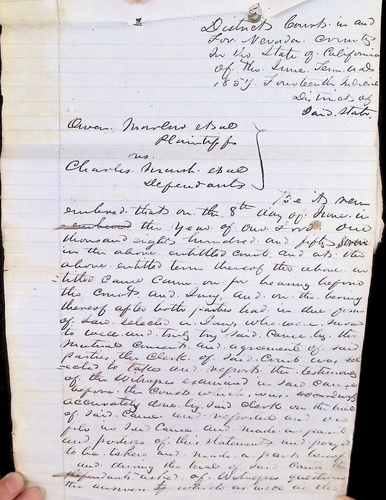 District Court in and
For Nevada County
In the State of California
of the June Term A.D.
1857 Fourteenth Judicial
District of
Said State
Owen Marlow et al
Plaintiffs
vs.
Charles Marsh et al
Defendants
Be it rem
embered that on the 8th day of June in
the Year of our Lord One
thousand eight hundred and fifty seven
in the above entitled court and at the
above entitled term thereof the above en
titled Cause Came on for hearing before
the Court and Jury and on the hearing
thereof after both parties had in due form
of Law selected a Jury who were sworn
to well and truly try said Cause by the
mutual consent and agreement of said
parties the Clerk of said Court was sel
ected to take and report the testimony
of the Witnesses examined in said Cause
before the Court which was accordingly
accurately done by said Clerk on the trial
of said Cause and reported and on
file in said Cause and made a part
and portion of this statement and prayed
to be taken and made a part hereof
and during the trial of said Cause the
defendants asked of Witnesses questions
the answers to which